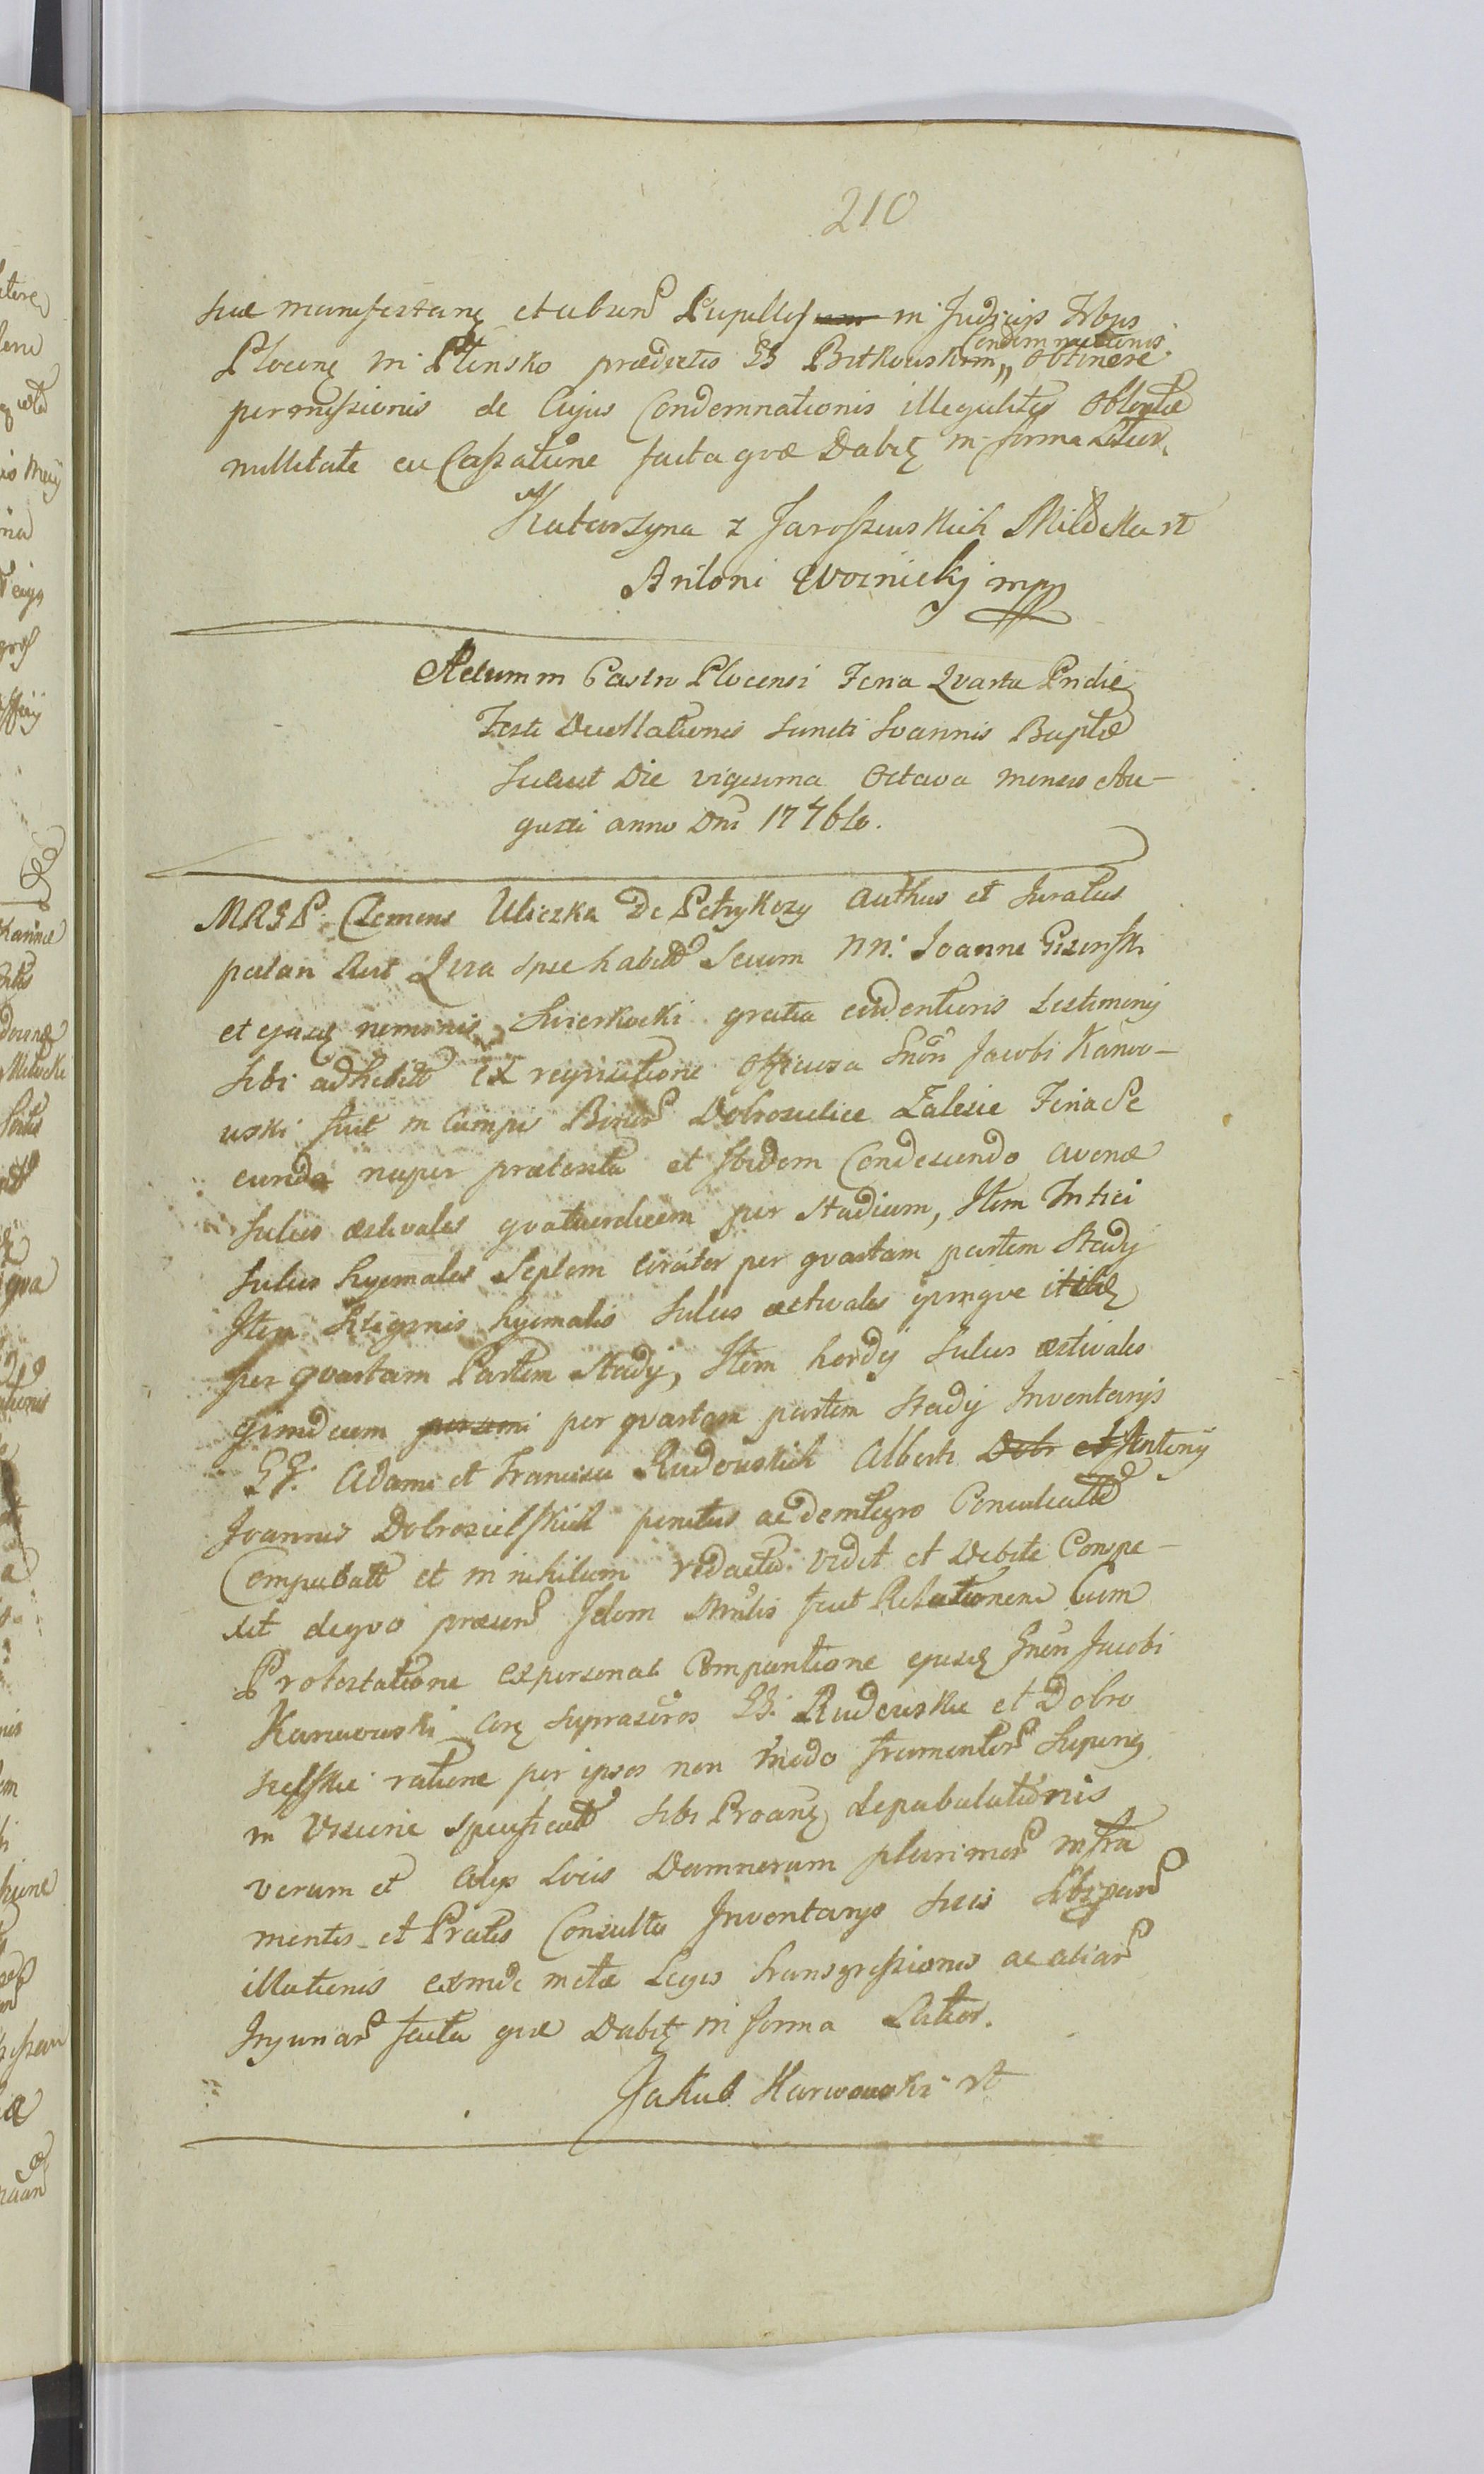 210
suæ manifestanę et aliar Pupillos in Judicijs Trbus
Condemnationis
Plocenę in Plonsko prædictis GG Bitkowskim „ obtinere
permissionis de Cujus Condemnationis illegalitęr obtentæ
nullitate eu Cassatione facta qvæ Dabitę in forma Latior.
Katarzyna z Jaroszewskich Mildeka st
Antoni Woznicki mpp
Actum in Castro Plocensi Feria Qvarta Pridie
Festi Decollationis Sancti Joannis Baptæ
Scilicet Die vigesima Octava mensis Au-
gusti anno Dni 1776to.
MRSP. Clemens Uliczka De Petrykozy Authus et Juratus
palam Rect Qcra spe habitto Secum NN. Joanne Gizinski
et ejusdę nominis Swierkocki gratia evidentioris testimonij
sibi adhibitto Ex reqvisitione officiosa Gnōn Jacobi Karwo-
wski fuit in Campis Bonor Dobrosielice Zalesie Feria Se
cunda nuper præterita et Ibidem Condescendo avenæ
Sulcos æstivales qvatuordecem per Stadium, Item Tritici
Sulcos hyemales Septem circiter per qvartam partem Stadij
Item Siliginis hyemalis Sulcos æstivales qvinqve itidę
per qvartam Partem Stadij, Item hordij Sulcos æstivales
qvindecim per qvartam partem Stadij Inventarijs
GG. Adami et Francisci Rudowskich Alberti Dobr et Antonij
Joannis Dobrosielskich penitus ac deintegro Conculcatto
Compabatt et in nihilum redactto. Vidit et Debite Conspe-
xit deqvo præmr Idem Mnlis fecit Relationem Cum
Protestatione expersonali Comparitione ejusdę Gnōn Jacobi
Karwowski Corę suprascros GG. Rudowskie et Dobro
sielskie ratione per ipsos non modo frumentor Superię
in Visione specificatto sibi Proanę depabulationis
verum et Alijs Locis Damnorum plurimor in fru
mentis et Pratis Consulto Inventarijs suis
illationis exinde metæ Legis transgressionis ac aliar
Injuriar facta qvæ Dabitę in forma Latior.
Jakub Karwowski st